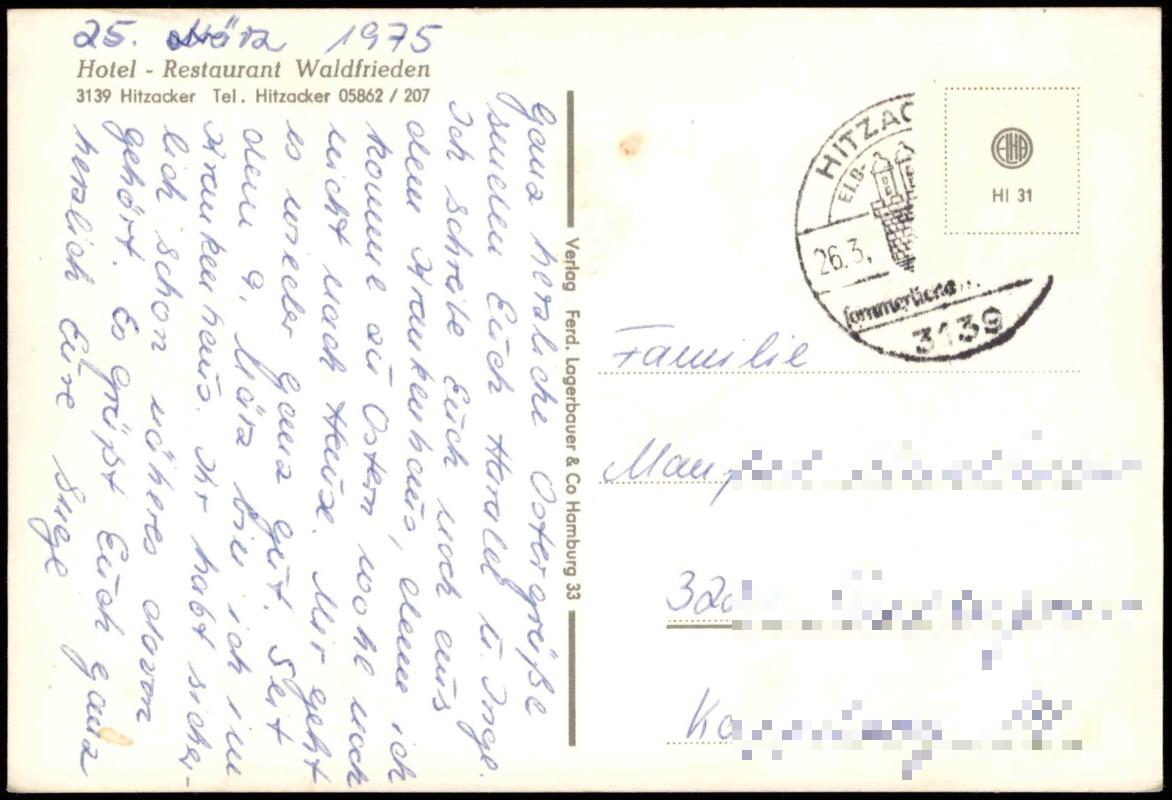 25. März 1975
Hotel - Restaurant Waldfrieden
3139 Hitzacker Tel. Hitzacker 05862 / 207
Ganz herzliche Ostergrüße
senden Euch Harald u. Inge.
Ich schreibe Euch noch aus
dem Krankenhaus, denn ich
komme zu Ostern wohl noch
nicht nach Hause. Mir geht
es wieder ganz gut. Seit
dem 9. März bin ich im
Krankenhaus. Ihr habt sicher-
lich schon näheres davon
gehört. Es grüßt Euch ganz
herzlich Eure Inge
Verlag Ferd. Lagerbauer & Co Hamburg 33
HITZAC
ELB-
26.3.
3139
EHA
HI 31
Familie